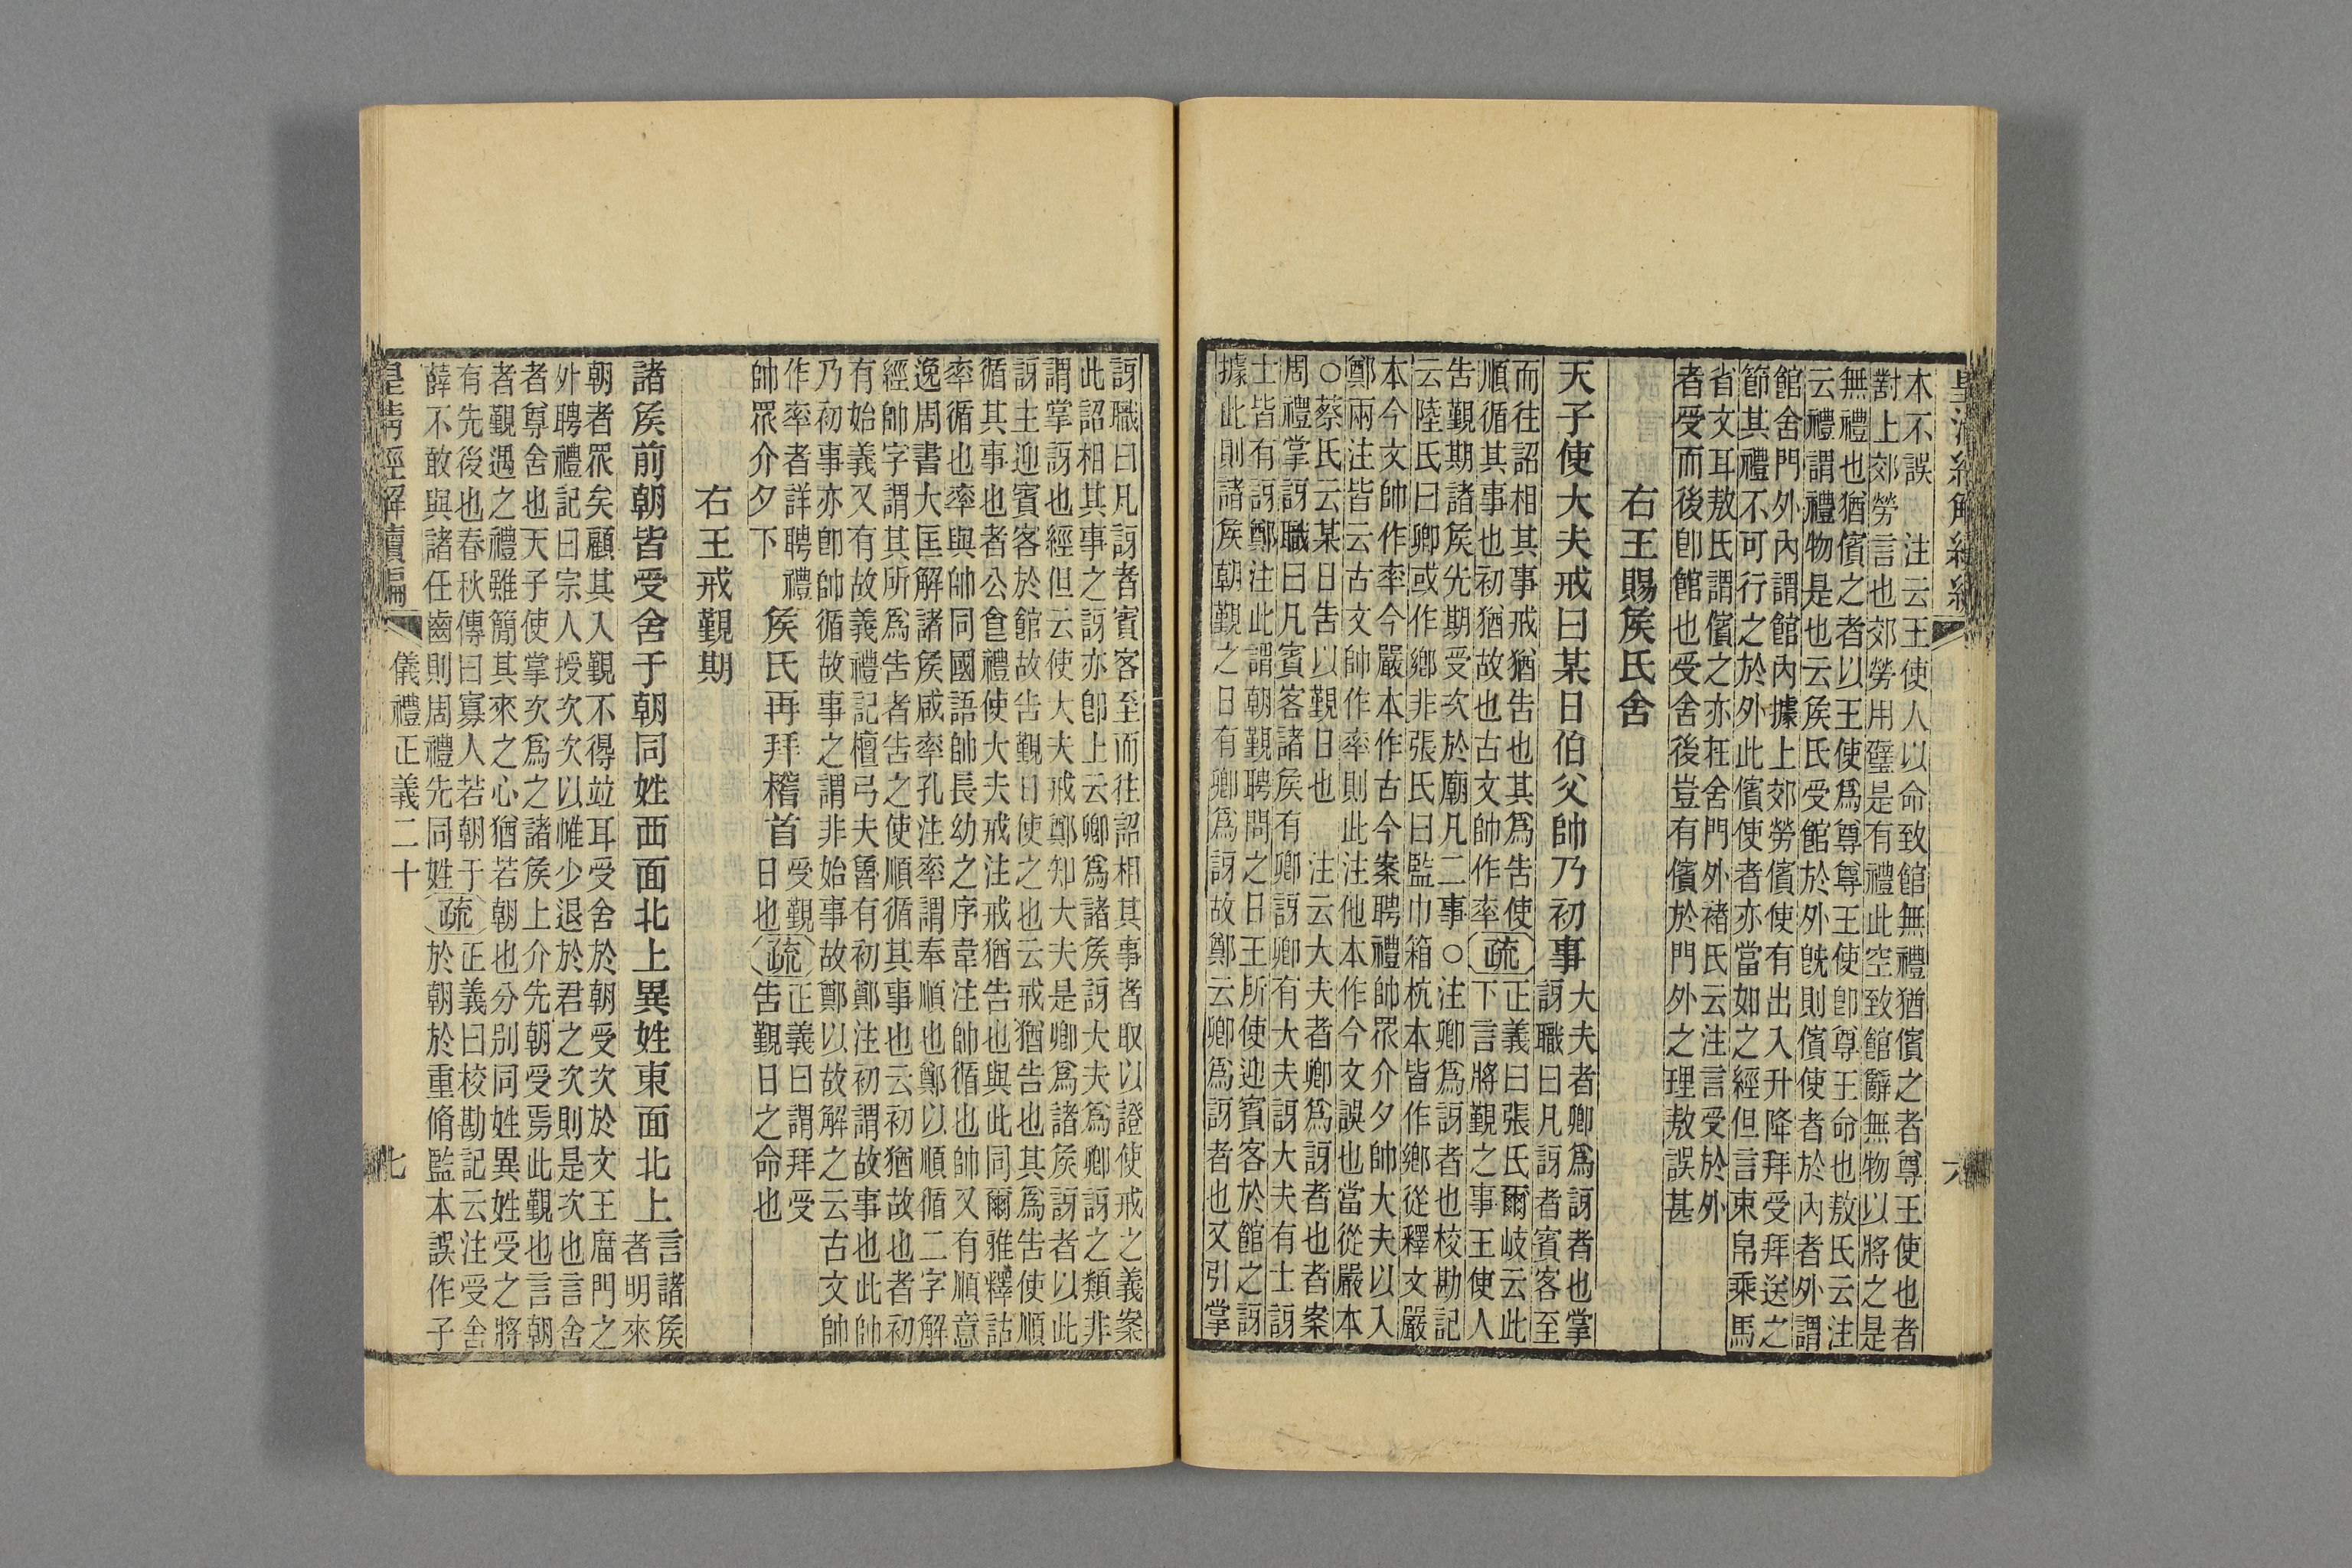 皇清經解續編
六
本不誤　注云王使人以命致館無禮猶儐之者尊王使也者
對上郊勞言也郊勞用璧是有禮此空致館辭無物以將之是
無禮也猶儐之者以王使爲尊尊王使卽尊王命也敖氏云注
云禮謂禮物是也云矦氏受館於外旣則儐使者於內者外謂
館舍門外內謂館內據上郊勞儐使有出入升降拜受拜送之
節其禮不可行之於外此儐使者亦當如之經但言束帛乘馬
省文耳敖氏謂儐之亦在舍門外褚氏云注言受於外
者受而後卽館也受舍後豈有儐於門外之理敖誤甚
右王賜矦氏舍
天子使大夫戒曰某日伯父帥乃初事
大夫者卿爲訝者也掌
訝職曰凡訝者賓客至
而往詔相其事戒猶告也其爲告使
順循其事也初猶故也古文帥作率
疏
正義曰張氏爾岐云此
下言將覲之事王使人
告覲期諸矦先期受次於廟凡二事○注卿爲訝者也校勘記
云陸氏曰卿或作鄉非張氏曰監巾箱杭本皆作鄉從釋文嚴
本今文帥作率今嚴本作古今案聘禮帥眾介夕帥大夫以入
鄭兩注皆云古文帥作率則此注他本作今文誤也當從嚴本
○蔡氏云某日告以覲日也　注云大夫者卿爲訝者也者案
周禮掌訝職曰凡賓客諸矦有卿訝卿有大夫訝大夫有士訝
士皆有訝鄭注此謂朝覲聘問之日王所使迎賓客於館之訝
據此則諸矦朝覲之日有卿爲訝故鄭云卿爲訝者也又引掌
訝職曰凡訝者賓客至而往詔相其事者取以證使戒之義案
此詔相其事之訝亦卽上云卿爲諸矦訝大夫爲卿訝之類非
謂掌訝也經但云使大夫戒鄭知大夫是卿爲諸矦訝者以此
訝主迎賓客於館故告覲日使之也云戒猶告也其爲告使順
循其事也者公食禮使大夫戒注戒猶告也與此同爾雅釋詁
率循也率與帥同國語帥長幼之序韋注帥循也帥又有順意
逸周書大匡解諸矦咸率孔注率謂奉順也鄭以順循二字解
經帥字謂其所爲告者告之使順循其事也云初猶故也者初
有始義又有故義禮記檀弓夫魯有初鄭注初謂故事也此帥
乃初事亦卽帥循故事之謂非始事故鄭以故解之云古文帥
作率者詳聘禮
帥眾介夕下
矦氏再拜稽首
受覲
日也
疏
正義曰謂拜受
告覲日之命也
右王戒覲期
諸矦前朝皆受舍于朝同姓西面北上異姓東面北上
言諸矦
者明來
朝者眾矣顧其入覲不得竝耳受舍於朝受次於文王廟門之
外聘禮記曰宗人授次次以帷少退於君之次則是次也言舍
者尊舍也天子使掌次爲之諸矦上介先朝受焉此覲也言朝
者覲遇之禮雖簡其來之心猶若朝也分別同姓異姓受之將
有先後也春秋傳曰寡人若朝于
薛不敢與諸任齒則周禮先同姓
疏
正義曰校勘記云注受舍
於朝於重脩監本誤作子
皇清經解續編
儀禮正義二十
七